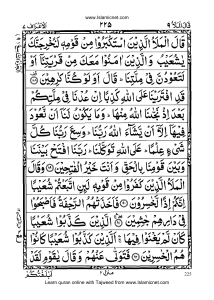 www.islamicnet.com
قال الملا ٩
٢٢٥
الاعراف ٧
قَالَ الْمَلَاُ الَّذِيْنَ اسْتَكْبَرُوْا مِنْ قَوْمِهٖ لَنُخْرِجَنَّكَ
يٰشُعَيْبُ وَالَّذِيْنَ اٰمَنُوْا مَعَكَ مِنْ قَرْيَتِنَاۤ اَوْ
لَتَعُوْدُنَّ فِيْ مِلَّتِنَا ؕ قَالَ اَوَلَوْ كُنَّا كٰرِهِيْنَ
قَدِ افْتَرَيْنَا عَلَى اللّٰهِ كَذِبًا اِنْ عُدْنَا فِيْ مِلَّتِكُمْ
بَعْدَ اِذْ نَجّٰىنَا اللّٰهُ مِنْهَا ؕ وَمَا يَكُوْنُ لَنَاۤ اَنْ نَّعُوْدَ
فِيْهَاۤ اِلَّاۤ اَنْ يَّشَآءَ اللّٰهُ رَبُّنَا ؕ وَسِعَ رَبُّنَا كُلَّ
شَيْءٍ عِلْمًا ؕ عَلَى اللّٰهِ تَوَكَّلْنَا ؕ رَبَّنَا افْتَحْ بَيْنَنَا
وَبَيْنَ قَوْمِنَا بِالْحَقِّ وَاَنْتَ خَيْرُ الْفٰتِحِيْنَ وَقَالَ
الْمَلَاُ الَّذِيْنَ كَفَرُوْا مِنْ قَوْمِهٖ لَئِنِ اتَّبَعْتُمْ شُعَيْبًا
اِنَّكُمْ اِذًا لَّخٰسِرُوْنَ فَاَخَذَتْهُمُ الرَّجْفَةُ فَاَصْبَحُوْا
فِيْ دَارِهِمْ جٰثِمِيْنَ الَّذِيْنَ كَذَّبُوْا شُعَيْبًا
كَاَنْ لَّمْ يَغْنَوْا فِيْهَا ۚ اَلَّذِيْنَ كَذَّبُوْا شُعَيْبًا كَانُوْا
هُمُ الْخٰسِرِيْنَ فَتَوَلّٰى عَنْهُمْ وَقَالَ يٰقَوْمِ لَقَدْ
منزل ٢
225
Learn quran online with Tajweed from www.islamicnet.com